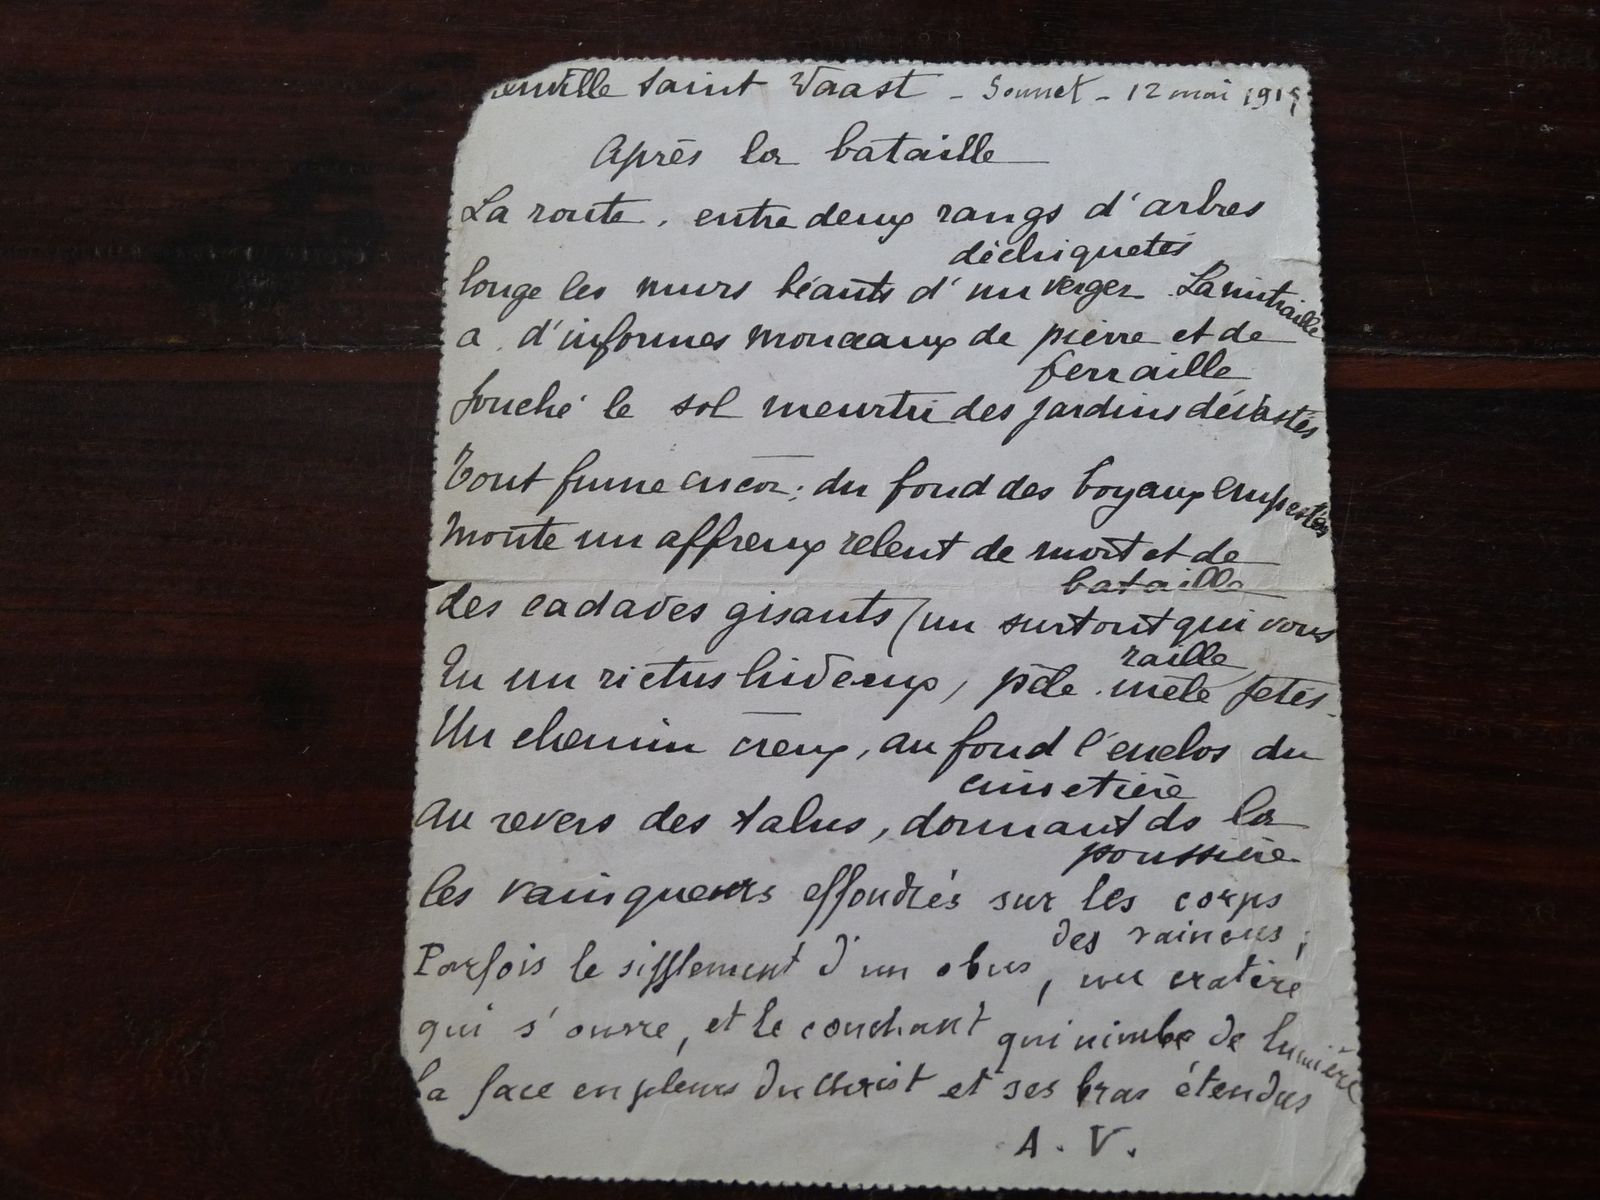 euville Saint Vaast - Sonnet - 12 mai 1915
Après la bataille
La route, entre deux rangs d'arbres
déchiquetés
longe les murs béants d'un verger. La mitraille
a, d'informes monceaux de pierre et de
ferraille
jonché le sol meurtri des jardins dévastés
Tout fume encor; du fond des boyaux empestés
Monte un affreux relent de mort et de
bataille
des cadavres gisants (un surtout qui vous
raille
En un rictus hideux, pêle-mêle jetés.
Un chemin creux, au fond l'enclos du
cimetière
Au revers des talus, dormant ds la
poussière
les vainqueurs effondrés sur les corps
des vaincus;
Parfois le sifflement d'un obus, un cratère
qui s'ouvre, et le couchant qui nimbe de lumière
la face en pleurs du Christ et ses bras étendus
A. V.